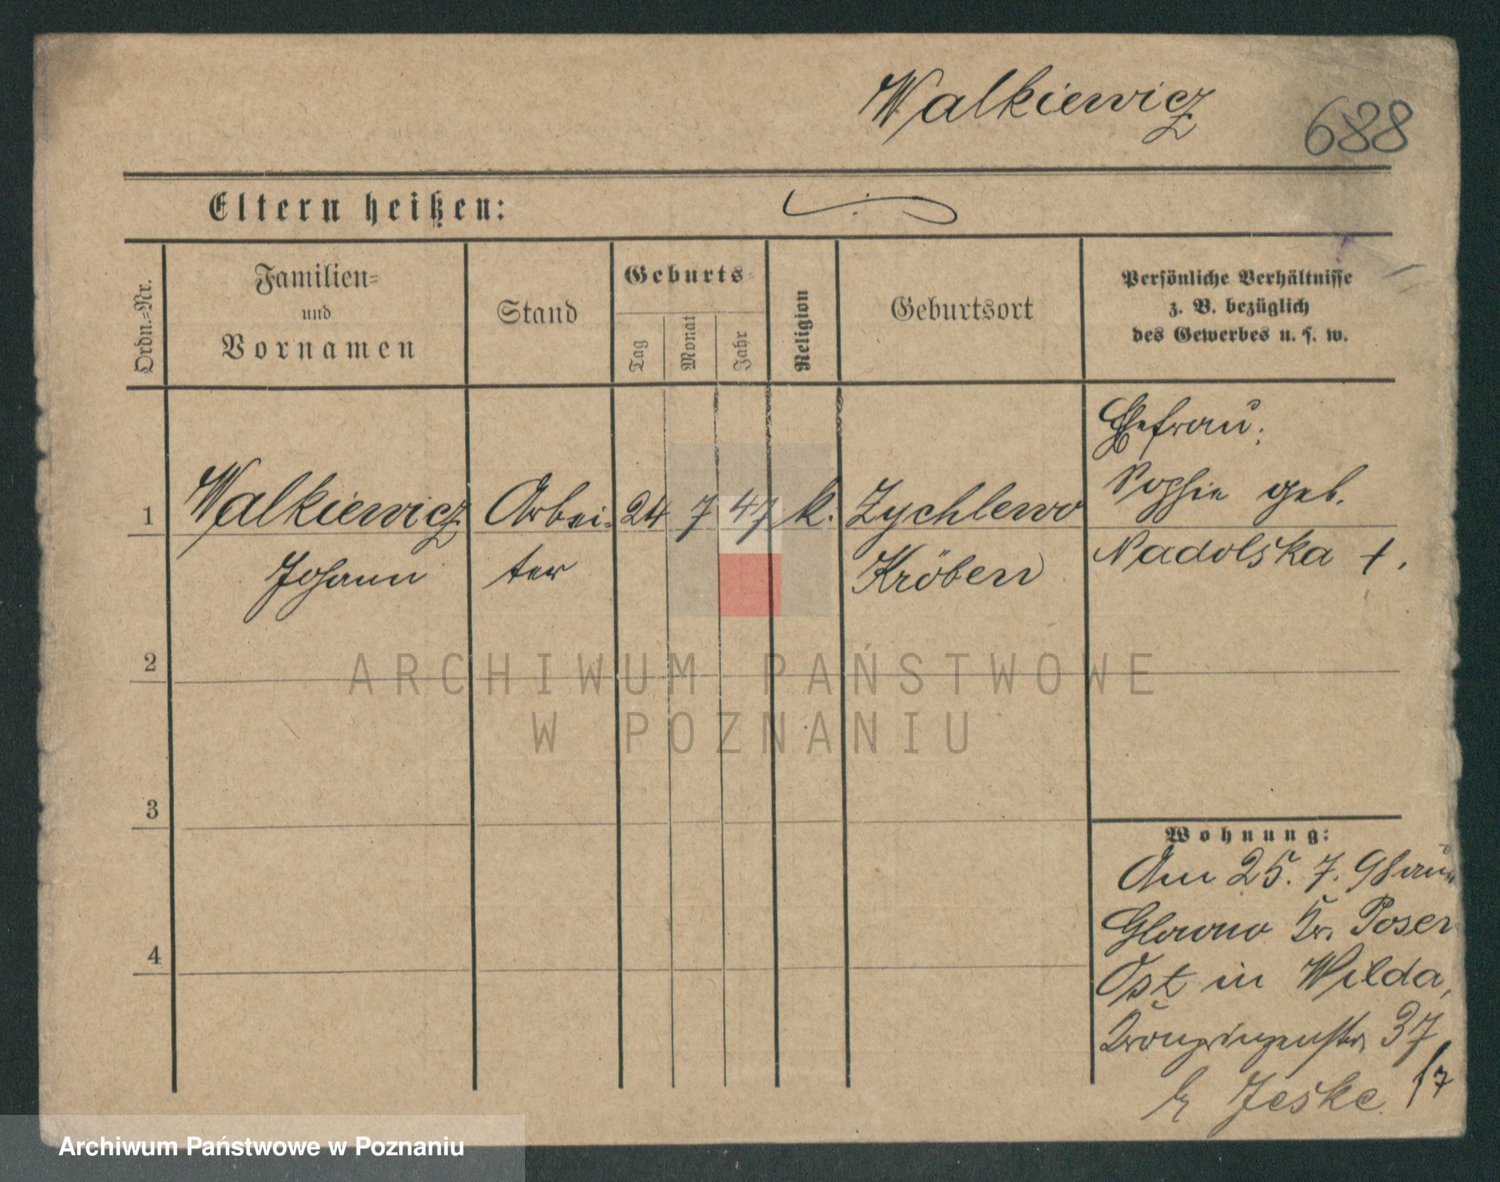 Walkiewicz
688
Eltern heißen:
Ordn.-Nr.
Familien-
und
Vornamen
Stand
Geburts-
Tag
Monat
Jahr
Religion
Geburtsort
Persönliche Verhältnisse
z. B. bezüglich
des Gewerbes u. s. w.
1
Walkiewicz
Johann
Arbei-
ter
24 7 47 k.
Zychlewo
Kröben
Ehefrau:
Sophie geb.
Nadolska †.
2
3
4
Wohnung:
Am 25. 7. 98 aus
Glowno Kr. Posen
Ost in Wilda,
Kronprinzenstr. 37
b Jeske
ARCHIWUM PAŃSTWOWE
W POZNANIU
Archiwum Państwowe w Poznaniu